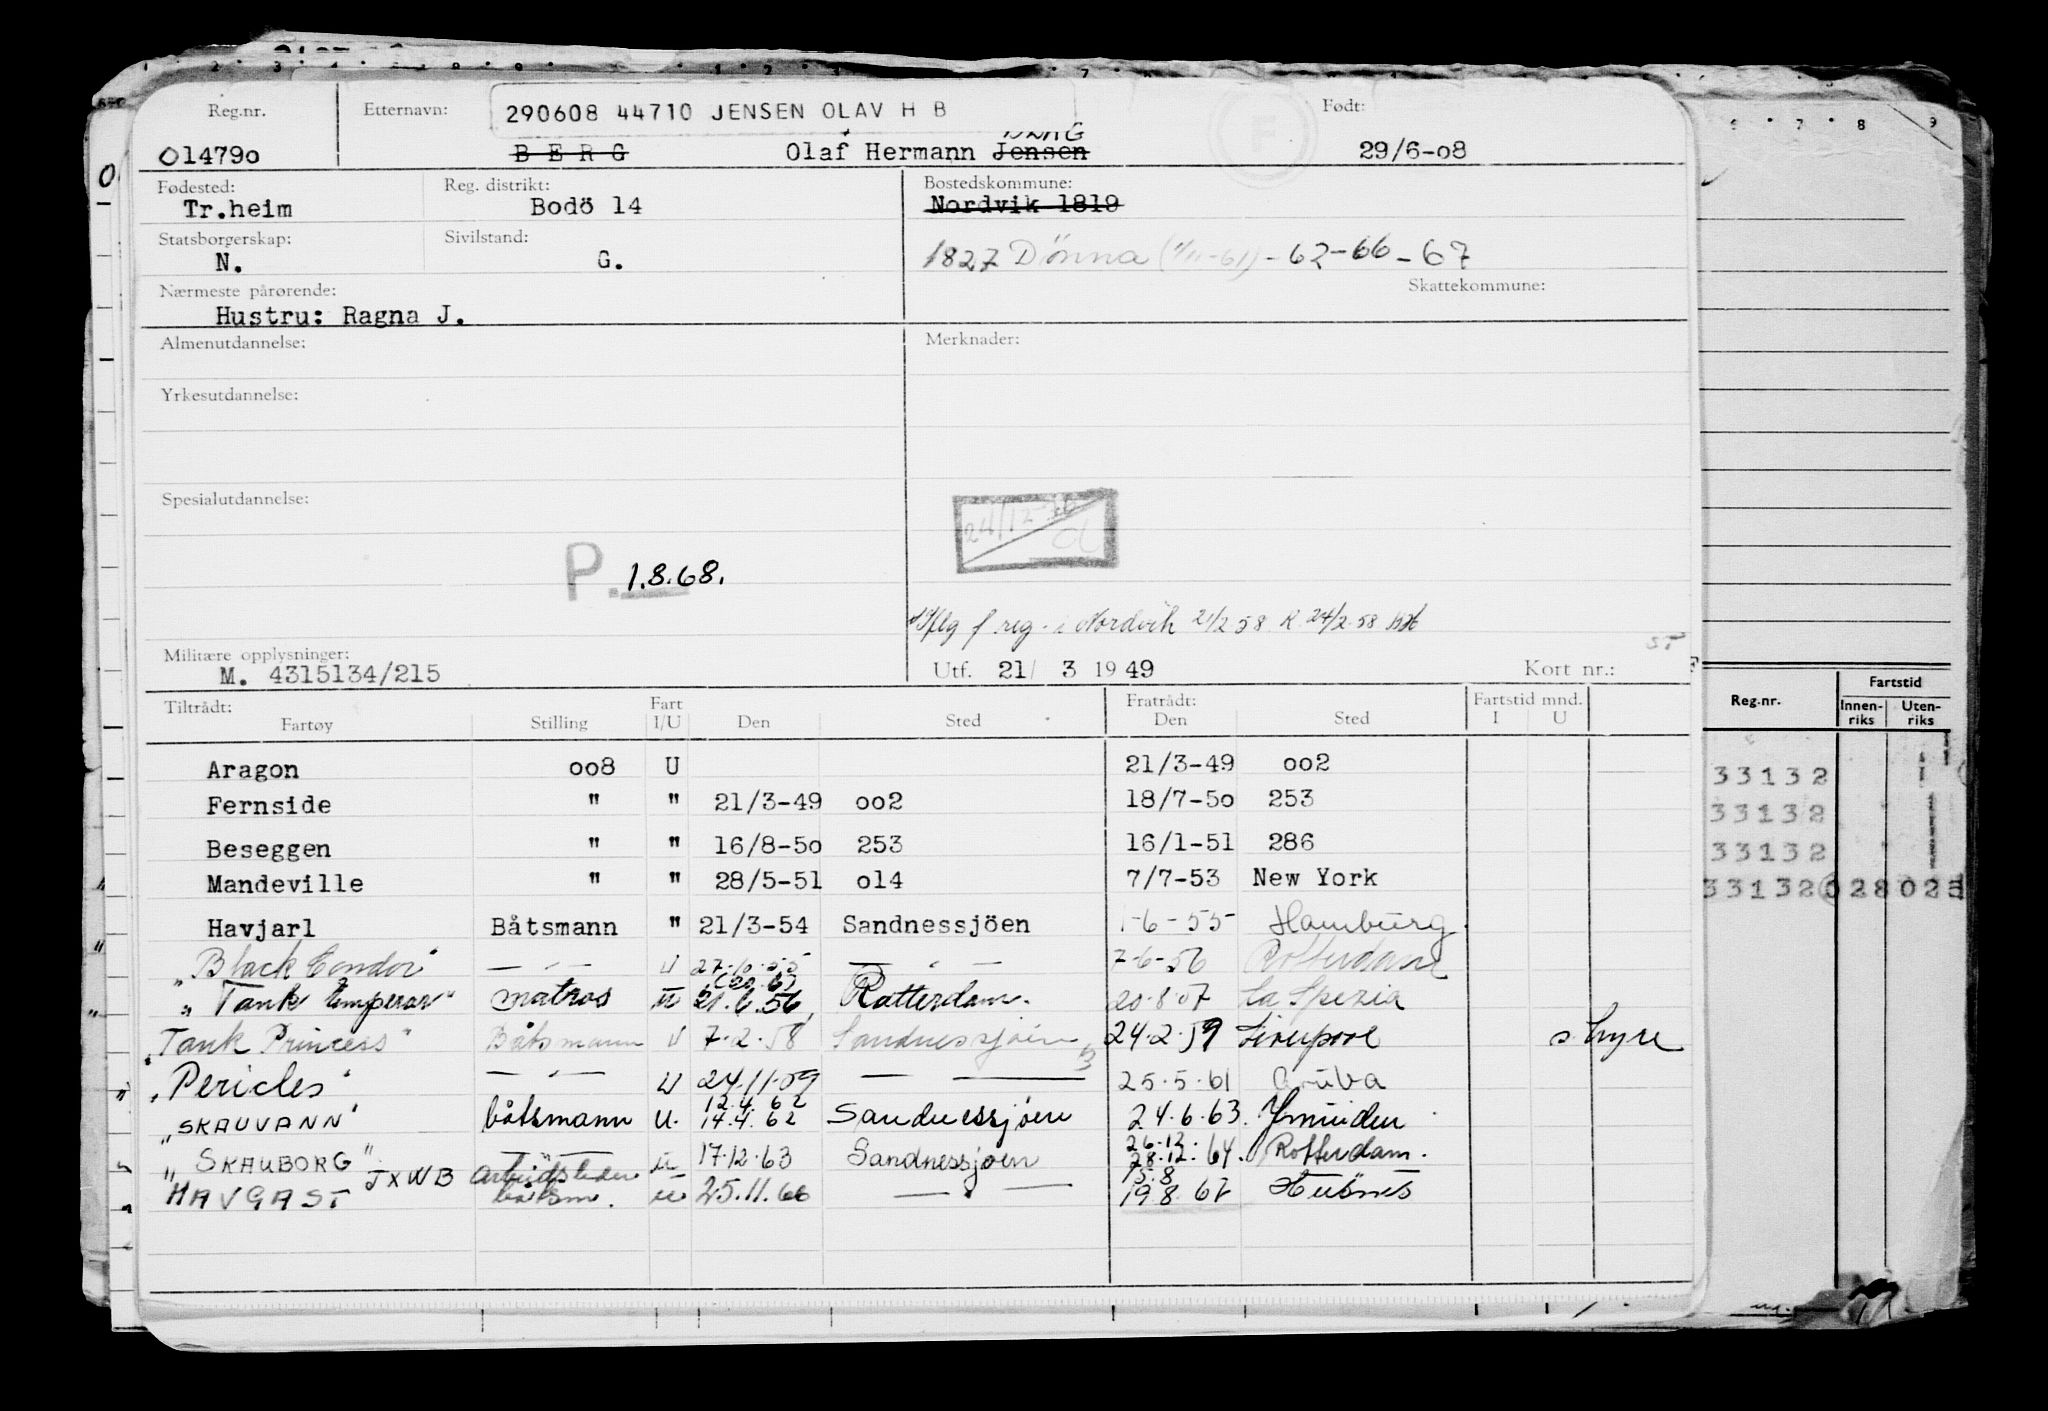 Reg.nr. Etternavn: 290608 44710 JENSEN OLAV H B Født:
014790 BERG Olaf Hermann Jensen BERG 29/6-08
Fødested: Reg. distrikt: Bostedskommune:
Tr.heim Bodö 14 Nordvik 1819
Statsborgerskap: Sivilstand:
N. G. 1827 Dönna (1/11-61) - 62-66-67
Nærmeste pårørende: Skattekommune:
Hustru: Ragna J.
Almenutdannelse: Merknader:
Yrkesutdannelse:
Spesialutdannelse:
24/12
P. 1.8.68.
f reg. i Nordvik 21/2 58 R. 24/2-58
Militære opplysninger:
M. 4315134/215 Utf. 21/ 3 1949 Kort nr.:
Tiltrådt: Fart Fratrådt: Fartstid mnd.
Fartøy Stilling I/U Den Sted Den Sted I U
Aragon 008 U 21/3-49 002
Fernside " " 21/3-49 002 18/7-50 253
Beseggen " " 16/8-50 253 16/1-51 286
Mandeville " " 28/5-51 014 7/7-53 New York
Havjarl Båtsmann " 21/3-54 Sandnessjöen 1-6-55 Hamburg
"Black Condor" — " — U 27.10.55 — " — 7-6-56 Rotterdam
"Tank Emperor" matros U 21.6.56 Rotterdam. 20.8.57 La Spezia
"Tank Princess" Båtsmann U 7.2.58 Sandnessjøen 24.2.59 Liverpool s. hyre
"Pericles" — " — U 24.11.59 — — 25.5.61 Aruba
"SKAUVANN" båtsmann U. 12.4.62 14.4.62 Sandnessjøen 24.6.63 Ymuiden
"SKAUBORG" — " — U 17.12.63 Sandnessjøen 26.12. 28.12.64. Rotterdam.
HAVGAST JXWB Arbeidsleder båtsm. U 25.11.66 — " — 15.8 19.8.67 Husnes
6 7 8 9
Reg.nr. Fartstid
Innenriks Utenriks
33132
33132
33132
33132 028 025